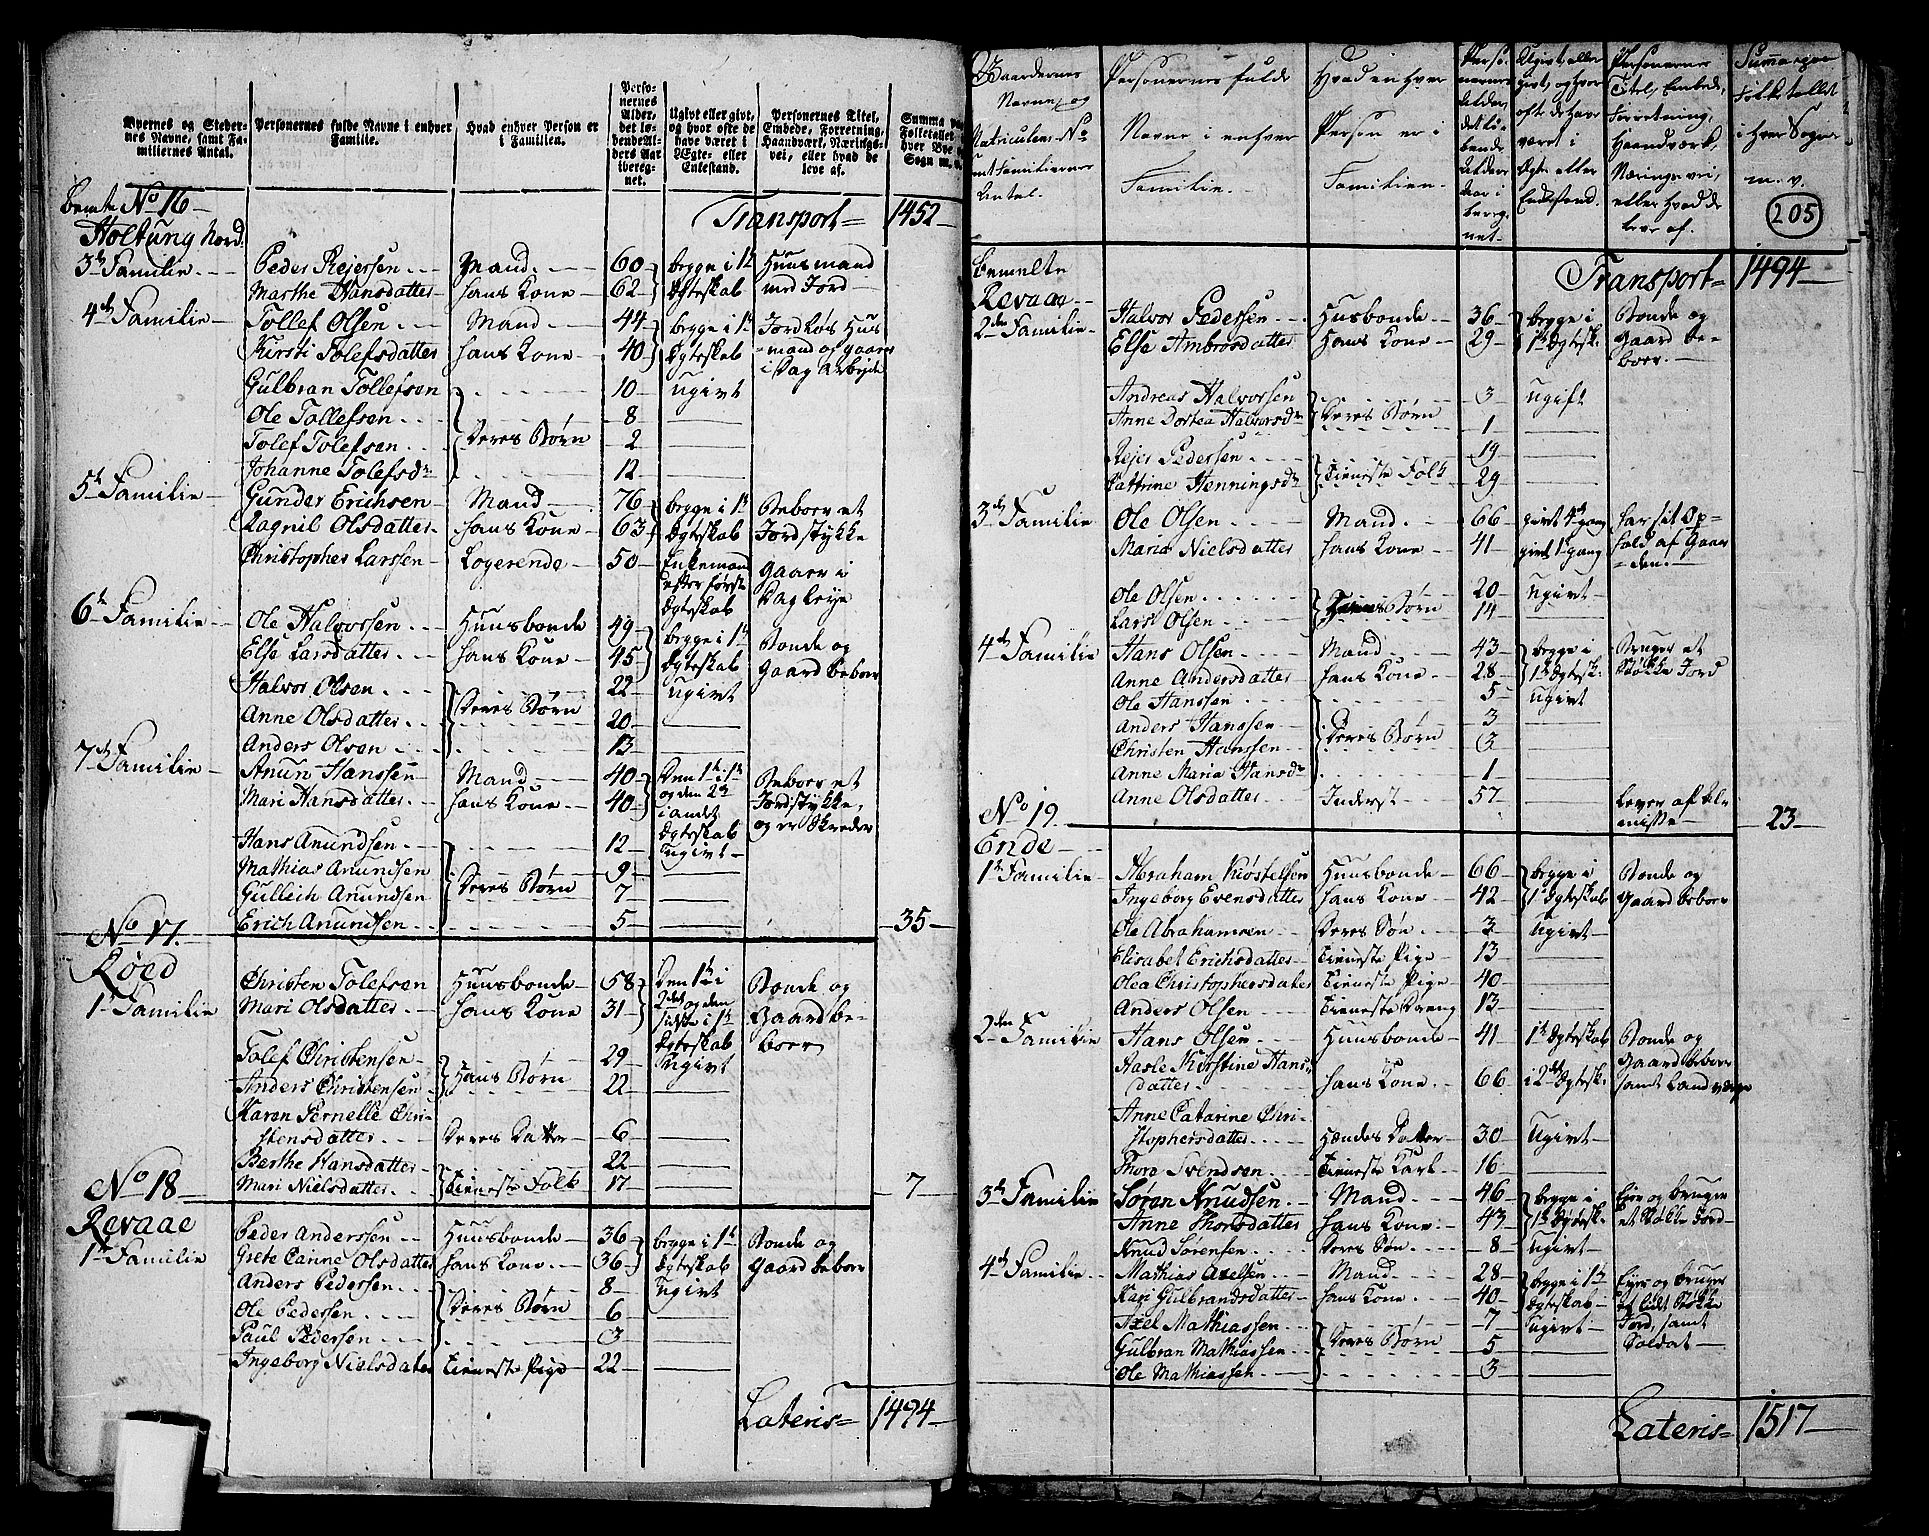 Byernes og Stedernes Navne, samt Familiernes Antal.
Personernes fulde Navne i enhver Familie.
Hvad enhver Person er i Familien.
Personernes Alder, det løbende Alders Aar iberegnet.
Ugivt eller givt, og hvor ofte de have været i Ægte- eller Enkestand.
Personernes Titel, Embede, Forretning, Haandværk, Næringsvei, eller hvad de leve af.
Summa paa Folketallet
Bemte No 16 Transport = 1452
Holtung nord
3die Familie Peder Rejersen Mand 60 begge i 1te Huusmand
Marthe Hansdatter hans Kone 62 Ægteskab med Jord
4de Familie Tollef Olsen Mand 44 begge i 1te Jordløs Hus
Kirsti Tolefsdatter hans Kone 40 Ægteskab mand og gaaer
i Dag Arbejde
Gulbran Tollefsen 10 ugivt
Ole Tollefsen 8
Tolef Tolefsen Deres Børn 2
Johanne Tolefsdr 12
5te Familie Gunder Erichsen Mand 76 begge i 1te Beboer et
Ragnil Olsdatter hans Kone 63 Ægteskab Jordstykke
Christopher Larsen Logerende 50 Enkemand gaaer i
efter første Dagleye
Ægteskab
6te Familie Ole Halvorsen Huusbonde 49 begge i 1te Bonde og
Else Larsdatter hans Kone 45 Ægteskab Gaard beboer
Halvor Olsen 22 ugivt
Anne Olsdatter Deres Børn 20
Anders Olsen 13
7de Familie Anun Hanssen Mand 40 Den 1te i 1te Beboer et
Mari Hansdatter hans Kone 40 og den 2den Jordstykke,
i andet og er Skreder
Ægteskab
Hans Anundsen 12 ugivt
Mathias Anundsen 9
Gulleich Anundsen Deres Børn 7
Erich Anundsen 5 35
No 17
Røed Christen Tolefsen Huusbonde 58 Den 1te i Bonde og
1te Familie Mari Olsdatter hans Kone 31 2det og den Gaard be-
sidste i 1te boer
Ægteskab
Tolef Christensen 29 ugivt
Anders Christensen Hans Børn 22
Karen Pernelle Chri-
stensdatter Deres Datter 6
Berthe Hansdatter 22
Mari Nielsdatter Tieneste Folk 17 7
No 18
Revaae Peder Anderssen Huusbonde 36 begge i 1te Bonde og
1te Familie Grete Carine Olsdatter hans Kone 36 Ægteskab Gaard beboer
Anders Pedersen 8 ugivt
Ole Pedersen Deres Børn 6
Paul Pedersen 3
Ingeborg Nielsdater Tieneste Pige 22
Lateris = 1494
Gaardernes Navne og Matriculens No samt Familiernes Antal.
Personernes fulde Navne i enhver Familie.
Hvad enhver Person er i Familien.
Personernes Alder, det løbende Alders Aar iberegnet.
Ugivt eller givt, og hvor ofte de have været i Ægte eller Enkestand.
Personernes Titel, Embede, Forretning, Haandværk, Nærings vei, eller hvad de leve af.
Summa paa Folketallet i hver Sogn m. v.
205
Bemelte Transport = 1494
Revaae
2den Familie Halvor Pedersen Husbonde 36 begge i Bonde og
Else Ambrosdatter Hans Kone 29 1te Ægtesk. Gaard be-
boer.
Andreas Halvorsen 3 ugift
Anne Dortea Halvorsdr Deres Børn 1
Rejer Pedersen 19
Cattrine Henningsdr Tieneste Folk 29
3die Familie Ole Olsen Mand 66 givt 4de gang har sit Op-
Maria Nielsdatter hans Kone 41 givt 1te gang hold af Gaar
den.
Ole Olsen 20 ugivt
Lars Olsen Børn 14
4de Familie Hans Olsen Mand 43 begge i Bruger et
Anne Andersdatter hans Kone 28 1te Ægtesk. Støkke Jord
Ole Hanssen 5 ugivt
Anders Hanssen 3
Christen Hanssen Deres Børn 3
Anne Maria Hansdr 1
Anne Olsdatter Inderst 57 Lever af Al-
misse 23
No 19
Ende
1te Familie Abraham Kiøstelsen Huusbonde 66 begge i Bonde og
Ingeborg Evensdatter hans Kone 42 1te Ægteskab Gaard beboer
Ole Abrahamsen Deres Søn 3 ugivt
Elisabet Erichsdatter Tieneste Pige 13
Olea Christophersdater Tieneste Pige 40
Anders Olsen Tieneste Dreng 13
2den Familie Hans Olsen Huusbonde 41 1te Ægteskab Bonde og
Aasle Kirstine Hans Gaard beboer
datter hans Kone 66 i 2det Ægtesk. samt Landværge
Anne Catarine Chri-
stophersdatter Hendes Datter 30 ugivt
Thore Svendsen Tieneste Karl 16
3die Familie Søran Knudsen Mand 46 begge i Ejer og bruger
Anne Thorsdatter hans Kone 43 1te Ægtesk. et Støkke Jord
Knud Sørensen Deres Søn 8 ugivt
4de Familie Mathias Axelsen Mand 28 begge i 1te Ejer og bruger
Kari Gulbrandsdatter hans Kone 40 Ægteskab et lidt Støkke
Axel Mathiassen 7 ugivt Jord, samt
Gulbran Mathiassen Deres Børn 5 Soldat
Ole Mathiassen 3
Lateris = 1517